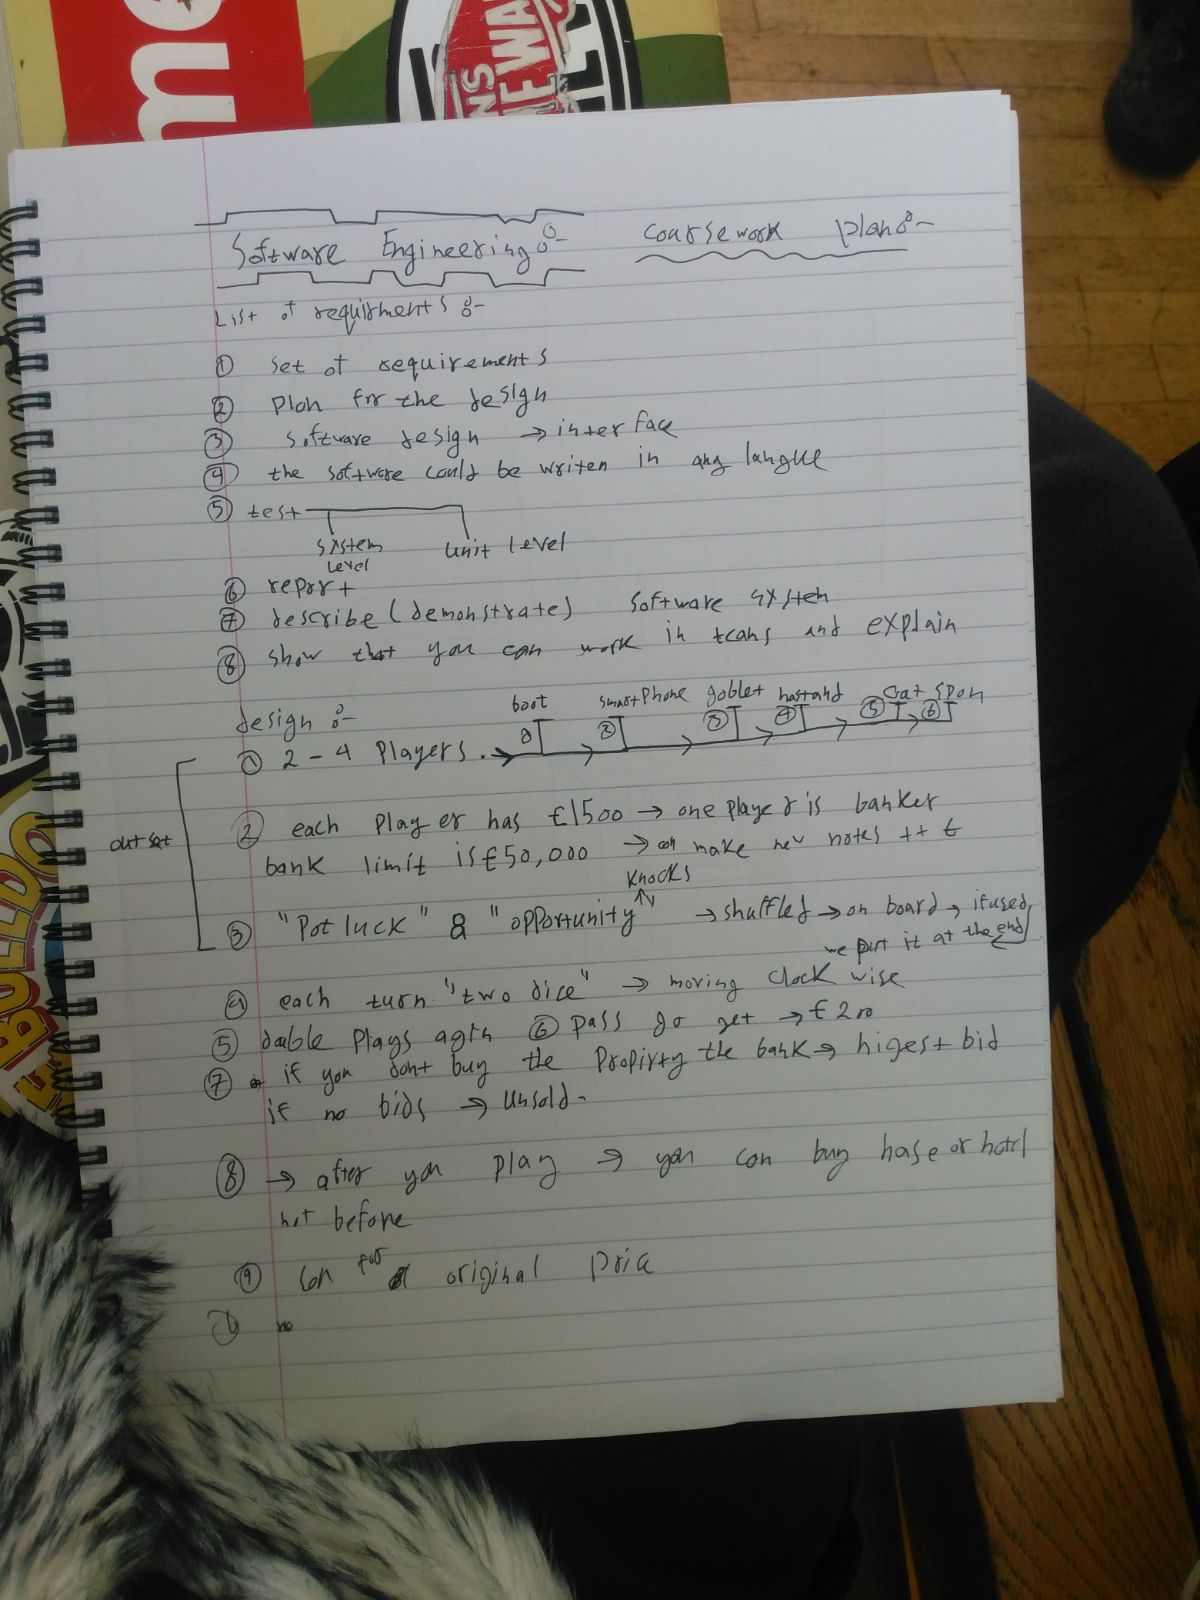 Software Engineering :-
coursework plan :-
List of requirments :-
① set of requirements
② plan for the design
③ software design → interface
④ the software could be writen in any langue
⑤ test
system level
unit level
⑥ report
⑦ describe (demonstrate) software system
⑧ show that you can work in teams and explain
design :-
boot smartphone goblet cat spon
① 2 - 4 players . → ② ③ ④ ⑤ ⑥
out set
② each player has £1500 → one player is banker
bank limit is £50,000 → can make new notes ++ £
knocks
③ "Pot luck" & "opportunity" → shuffled → on board → if used
we put it at the end
④ each turn "two dice" → moving clock wise
⑤ double plays agin ⑥ pass go get → £200
⑦ if you dont buy the propirty the bank → higest bid
if no bids → unsold.
⑧ → after you play → you can buy hase or hotel
not before
⑨ for original price
no